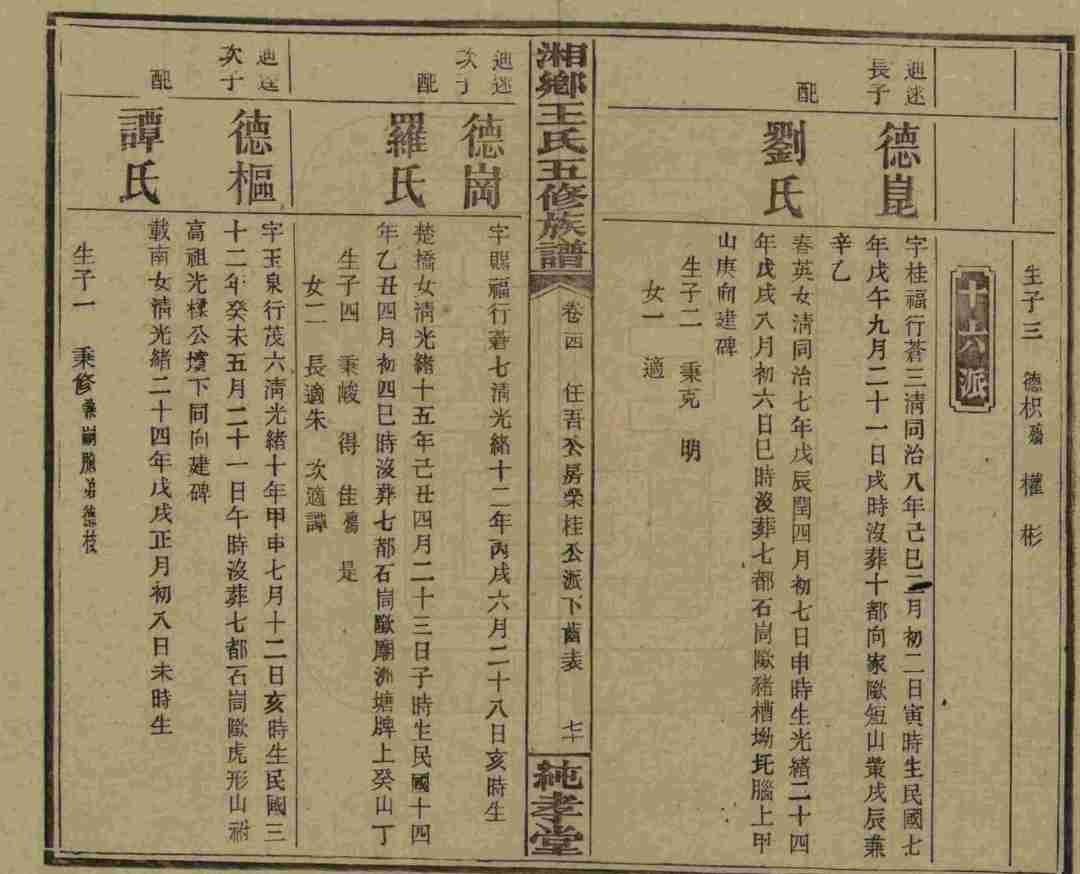 生子三 德枳殤 權 彬
十六派
迪迷長子 德崑
字桂福行蒼三清同治八年己巳三月初二日寅時生民國七
年戊午九月二十一日戌時沒葬十都向家歐短山業戌辰兼
辛乙
配 劉氏
春英女清同治七年戊辰閏四月初七日申時生光緒二十四
年戊戌八月初六日巳時沒葬七都石崗歐豬槽坳圫腦上甲
山庚向建碑
生子二 秉克 明
女一 適
湘鄉王氏五修族譜 卷四 任吾公房榮桂公派下齒表 七十 純孝堂
迪迷次子 德崗
字賜福行蒼七清光緒十二年丙戌六月二十八日亥時生
配 羅氏
楚橋女清光緒十五年己丑四月二十三日子時生民國十四
年乙丑四月初四巳時沒葬七都石崗歐廟 塘牌上癸山丁
生子四 秉峻 得 佳殤 是
女二 長適朱 次適譚
迪 次子 德樞
字玉泉行茂六清光緒十年甲申七月十二日亥時生民國三
十二年癸未五月二十一日午時沒葬七都石崗歐虎形山祔
高祖光樑公墳下同向建碑
配 譚氏
載南女清光緒二十四年戊戌正月初八日未時生
生子一 秉修兼嗣胞弟德枝